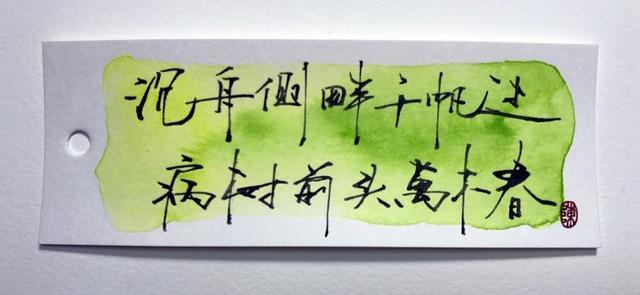 沉舟側畔千帆过
病树前头萬木春
陳